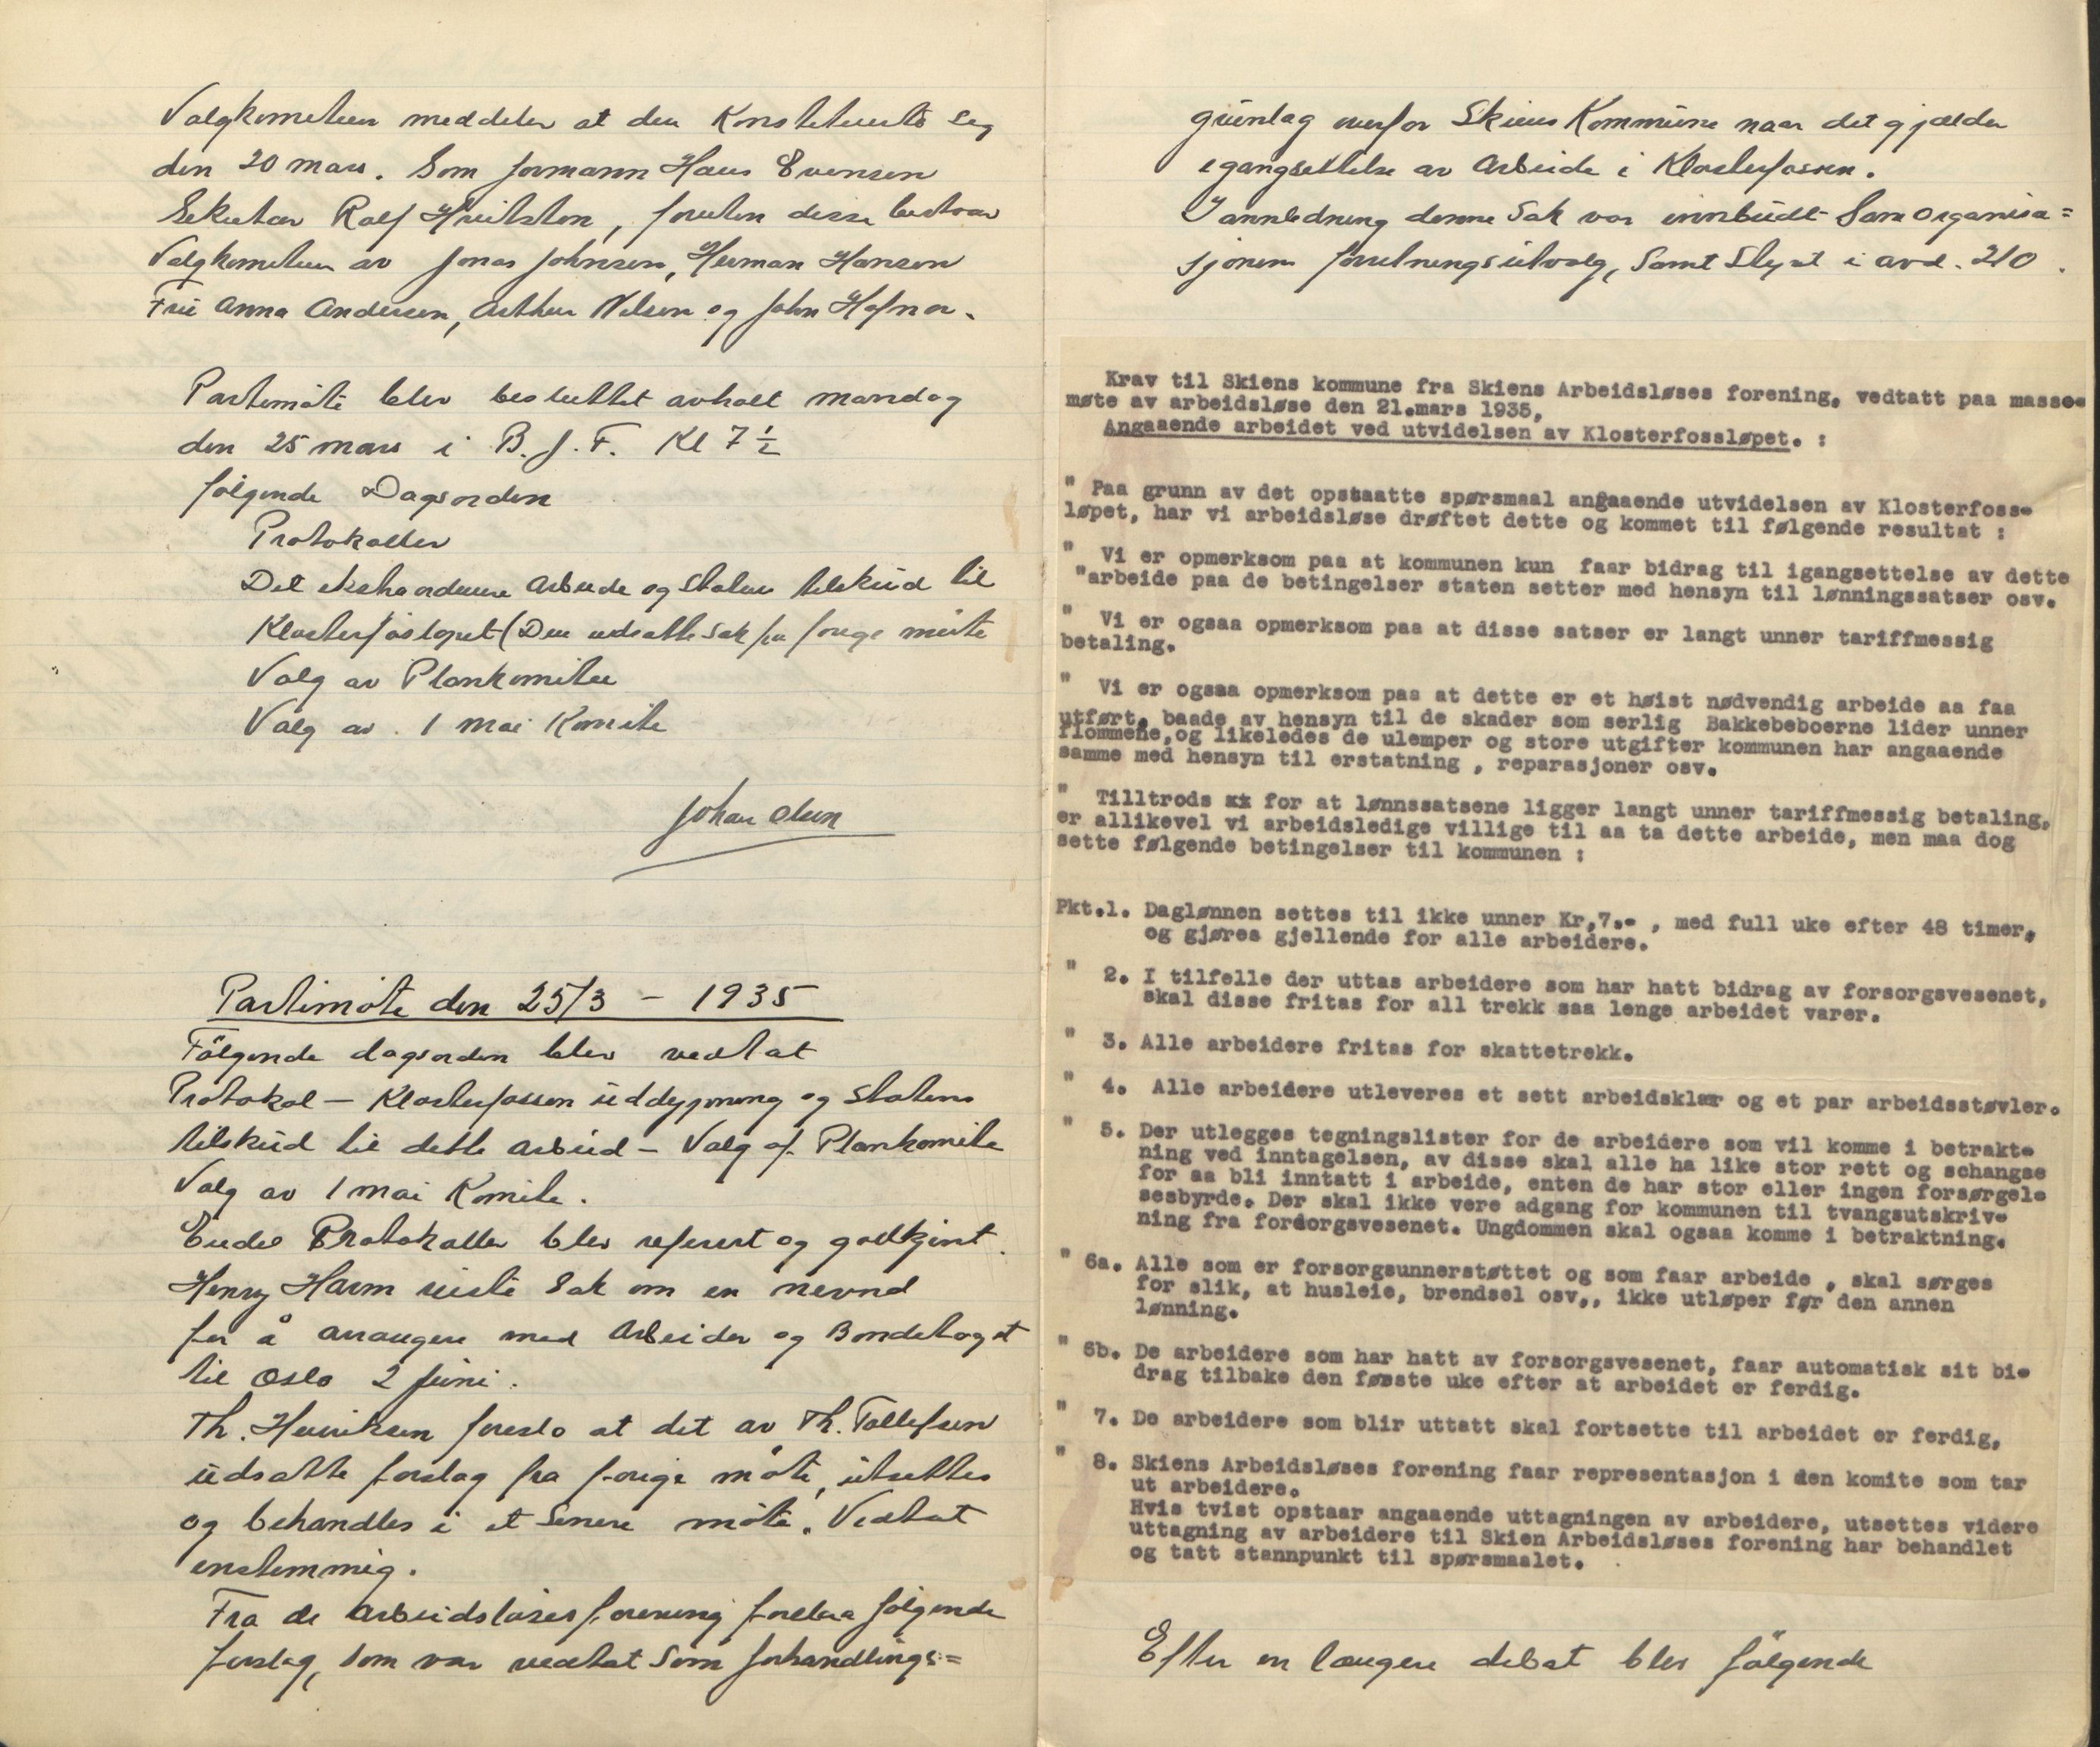 Valgkomiteen meddeler at den Konstituerte seg
den 20 mars. Som formann Hans Evensen
Sekretær Rolf Hvitsten, foruten disse bestaar
Valgkomiteen av Jonas Johnsen, Herman Hansen
Fru Anna Andersen, Arthur Nilsen og John Hafnor.
Partimöte blev besluttet avholt mandag
den 25 mars i B.J.F. Kl 7 ½
følgende Dagsorden
Protokoller
Det ekstraordinære Arbeide og Statens tilskud til
Klosterfosløpet (Den utsatte sak fra forige möte
Valg av Plankomitee
Valg av 1 mai Komite
Johan Olsen
Partimöte den 25/3 - 1935
Fölgende dagsorden blev vedtat
Protokol - Klosterfossen üddypning og Statens
tilskud til dette arbeid - Valg af Plankomite
Valg av 1 mai Komite.
Endel Protokoller blev referert og godkjent.
Henry Harm reiste Sak om en nevnd
for å arrangere med Arbeider og Bondetoget
til Oslo 2 Juni.
Th. Henriksen foreslo at det av Th. Tollefsen
üdsatte forslag fra forige möte, utsettes
og behandles i et senere möte. Vedtat
enstemmig.
Fra de Arbeidsløses forening forelaa følgende
forslag, som var vedtat som forhandlings=
grünlag overfor Skiens Kommüne naar det gjælder
igangsettelse av Arbeide i Klosterfossen.
I annledning denne Sak var innbüdt Samorganisa=
sjonens forretningsütvalg, Samt Styret i avd. 210.
Krav til Skiens kommune fra Skiens Arbeidsløses forening, vedtatt paa masse-
møte av arbeidsløse den 21.mars 1935,
Angaaende arbeidet ved utvidelsen av Klosterfossløpet. :
" Paa grunn av det opstaatte spørsmaal angaaende utvidelsen av Klosterfoss-
løpet, har vi arbeidsløse drøftet dette og kommet til følgende resultat :
" Vi er opmerksom paa at kommunen kun faar bidrag til igangsettelse av dette
"arbeide paa de betingelser staten setter med hensyn til lønningssatser osv.
" Vi er ogsaa opmerksom paa at disse satser er langt unner tariffmessig
betaling.
" Vi er ogsaa opmerksom paa at dette er et høist nødvendig arbeide aa faa
utført, baade av hensyn til de skader som serlig Bakkebeboerne lider unner
flommene,og likeledes de ulemper og store utgifter kommunen har angaaende
samme med hensyn til erstatning , reparasjoner osv.
" Tilltrods xx for at lønnssatsene ligger langt unner tariffmessig betaling,
er allikevel vi arbeidsledige villige til aa ta dette arbeide, men maa dog
sette følgende betingelser til kommunen :
Pkt.1. Daglønnen settes til ikke unner Kr,7.- , med full uke efter 48 timer,
og gjøres gjellende for alle arbeidere.
" 2. I tilfelle der uttas arbeidere som har hatt bidrag av forsorgsvesenet,
skal disse fritas for all trekk saa lenge arbeidet varer.
" 3. Alle arbeidere fritas for skattetrekk.
" 4. Alle arbeidere utleveres et sett arbeidsklær og et par arbeidsstøvler.
" 5. Der utlegges tegningslister for de arbeidere som vil komme i betrakt-
ning ved inntagelsen, av disse skal alle ha like stor rett og schangse
for aa bli inntatt i arbeide, enten de har stor eller ingen forsørgel-
sesbyrde. Der skal ikke vere adgang for kommunen til tvangsutskriv-
ning fra forsorgsvesenet. Ungdommen skal ogsaa komme i betraktning.
" 6a. Alle som er forsorgsunnerstøttet og som faar arbeide , skal sørges
for slik, at husleie, brendsel osv,, ikke utløper før den annen
lønning.
" 6b. De arbeidere som har hatt av forsorgsvesenet, faar automatisk sit bi-
drag tilbake den første uke efter at arbeidet er ferdig.
" 7. De arbeidere som blir uttatt skal fortsette til arbeidet er ferdig,
" 8. Skiens Arbeidsløses forening faar representasjon i den komite som tar
ut arbeidere.
Hvis tvist opstaar angaaende uttagningen av arbeidere, utsettes videre
uttagning av arbeidere til Skien Arbeidsløses forening har behandlet
og tatt stannpunkt til spørsmaalet.
Efter en længere debat blev fölgende